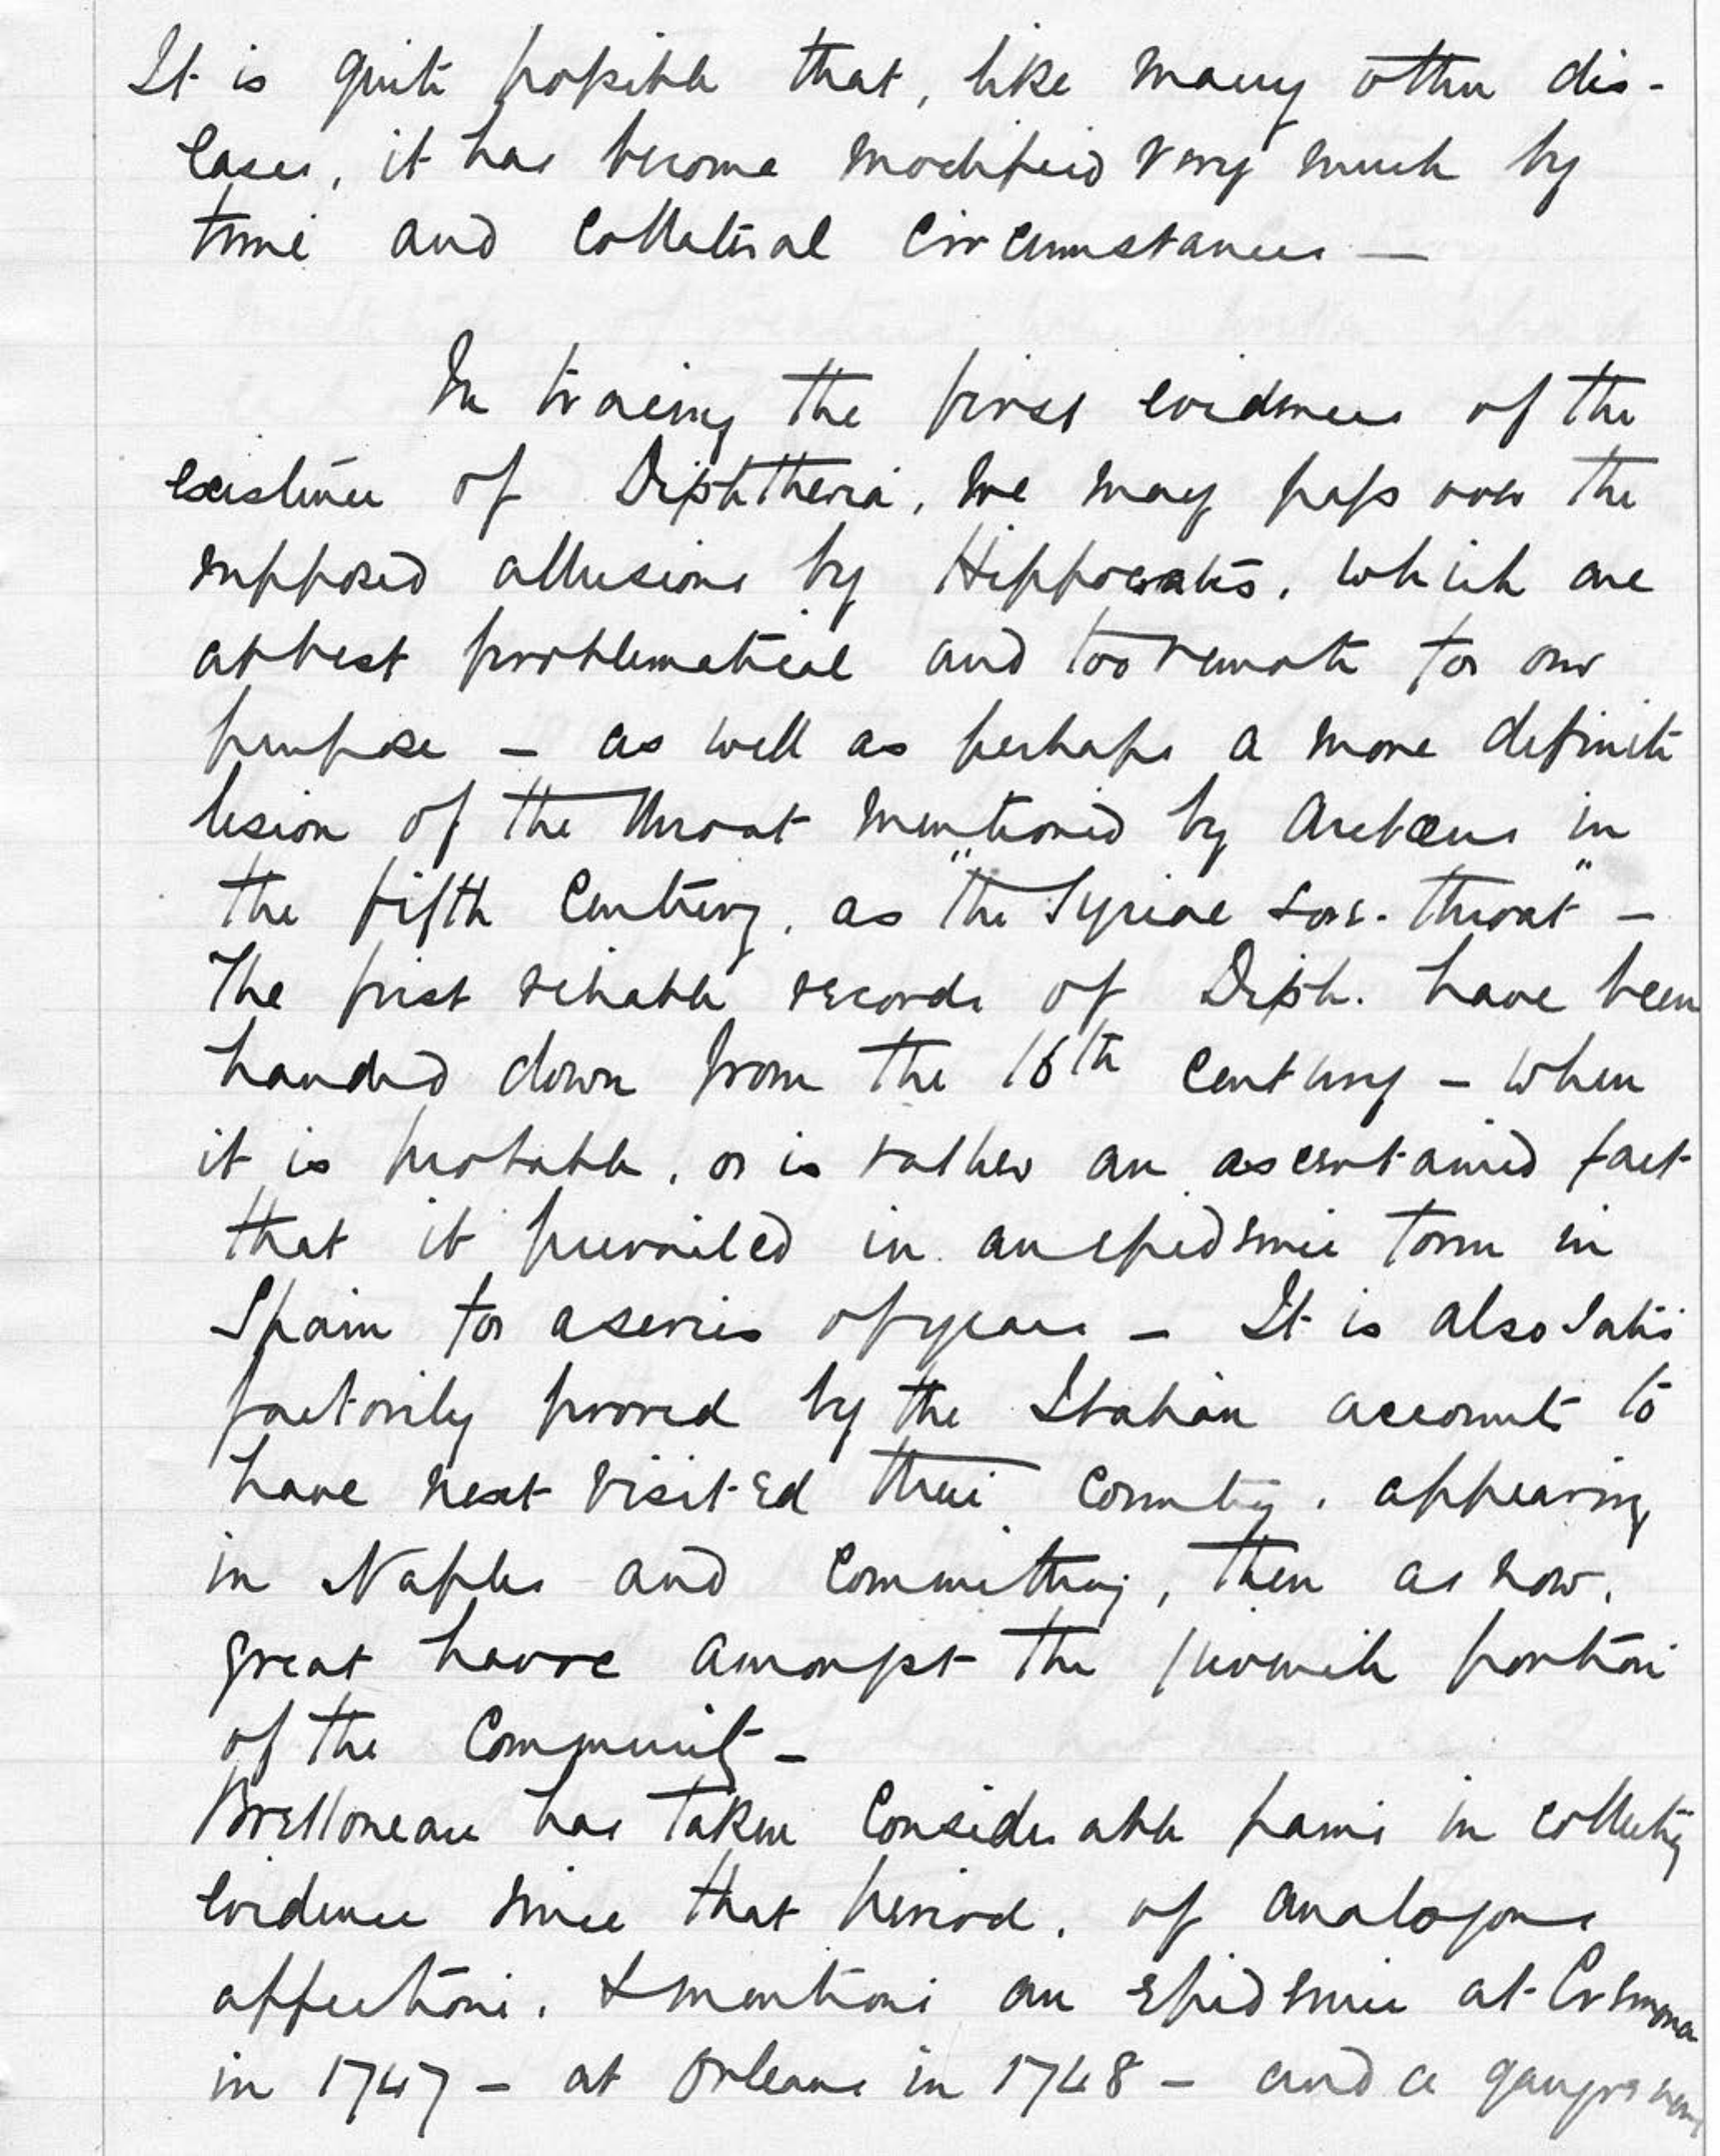 It is quite possible that, like many other dis-
eases, it has become modified very much by
time and collateral circumstances —
In tracing the first evidences of the
existence of Diphtheria, we may pass over the
supposed allusions by Hippocrates, which are
at best problematical and too remote for our
purpose – as well as perhaps a more definite
lesion of the throat mentioned by Aretæus in
the fifth Century, as "the Syriac sore-throat" –
The first reliable records of Diph. have been
handed down from the 16th Century – when
it is probable, or is rather an ascertained fact
that it prevailed in an epidemic form in
Spain for a series of years – It is also satis
factorily proved by the Italian accounts to
have next visited their country, appearing
in Naples and committing, then as now,
great havoc amongst the juvenile portion
of the Community –
Bretonneau has taken considerable pains in collecting
evidence since that period, of analogous
affections, & mentions an epidemic at Cremona
in 1747 – at Orleans in 1748 – and a gangrenous